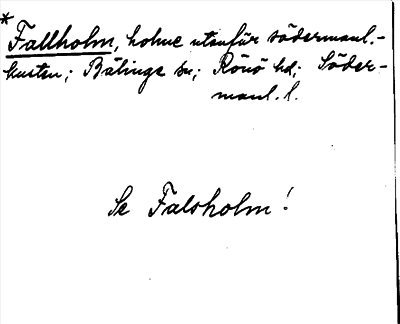 * Fallholm, holme utanför södermanl.-
kusten; Bälinge sn; Rönö hd; Söder-
manl. l.
Se Falsholm!